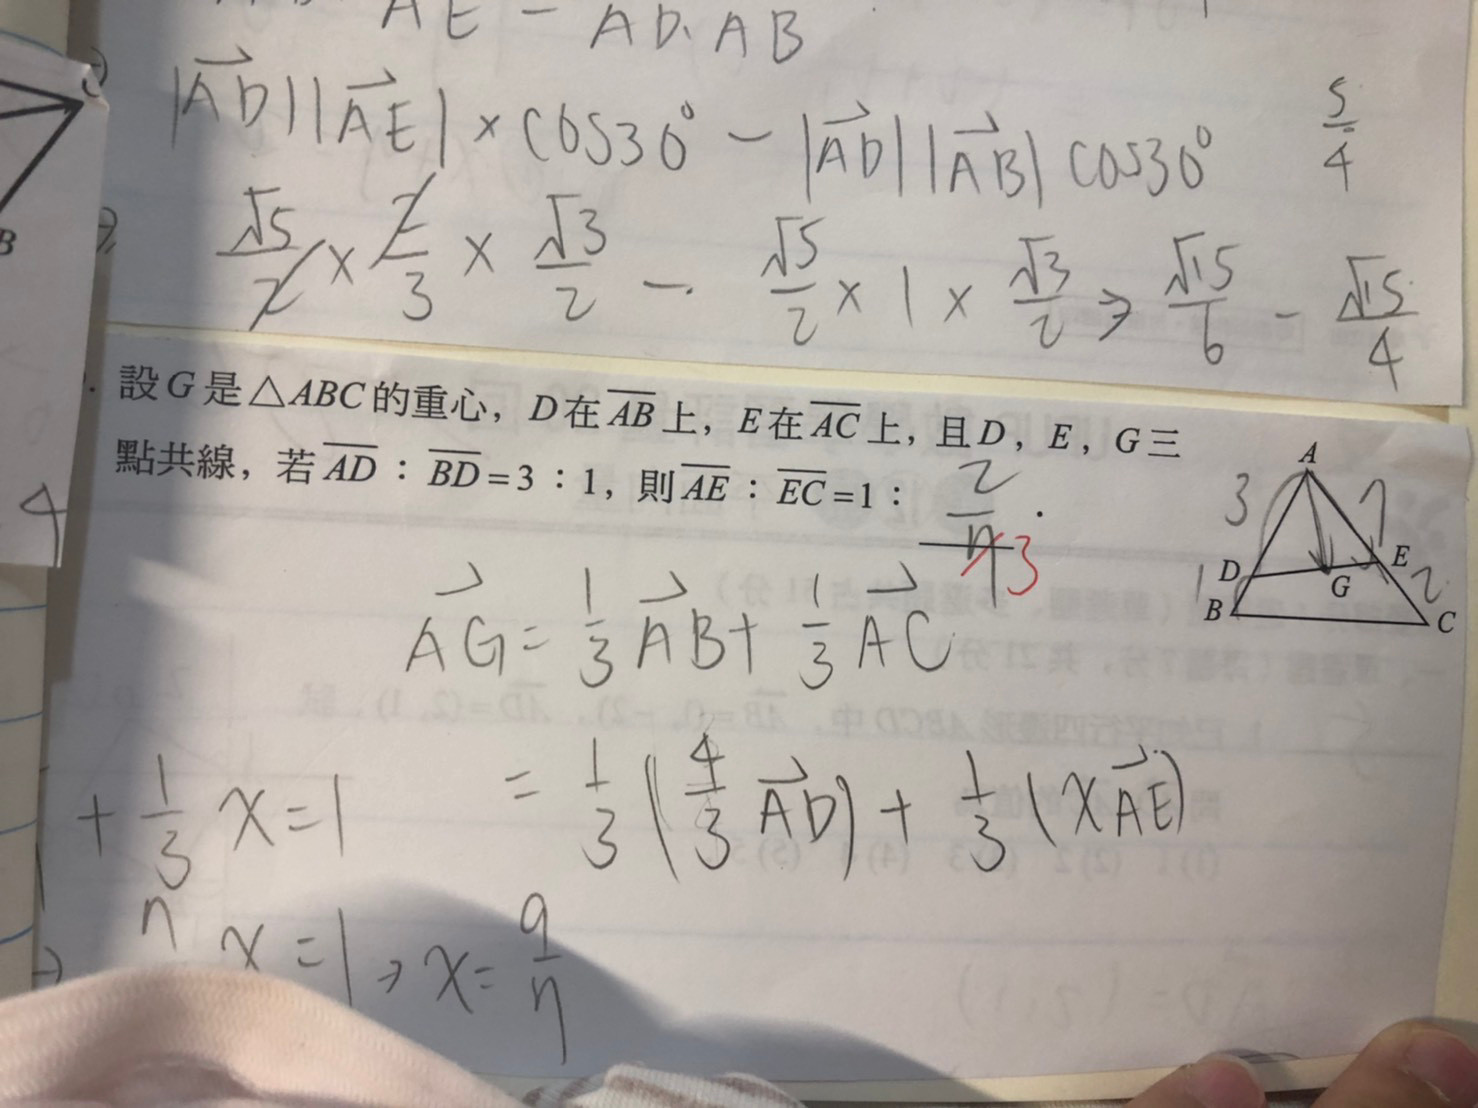 AE - AD·AB
|AD||AE| × cos30° - |AD||AB| cos30°
5/4
√5/2 × 2/3 × √3/2 - √5/2 × 1 × √3/2 ⇒ √15/6 - √15/4
B
4
設G是△ABC的重心，D在AB上，E在AC上，且D，E，G三
點共線，若AD：BD=3：1，則AE：EC=1： 2/7 3 .
A
3 7
D E
1 G 2
B C
AG = 1/3 AB + 1/3 AC
= 1/3 (4/3 AD) + 1/3 (x AE)
+ 1/3 x = 1
x = 1 → x = 9/7